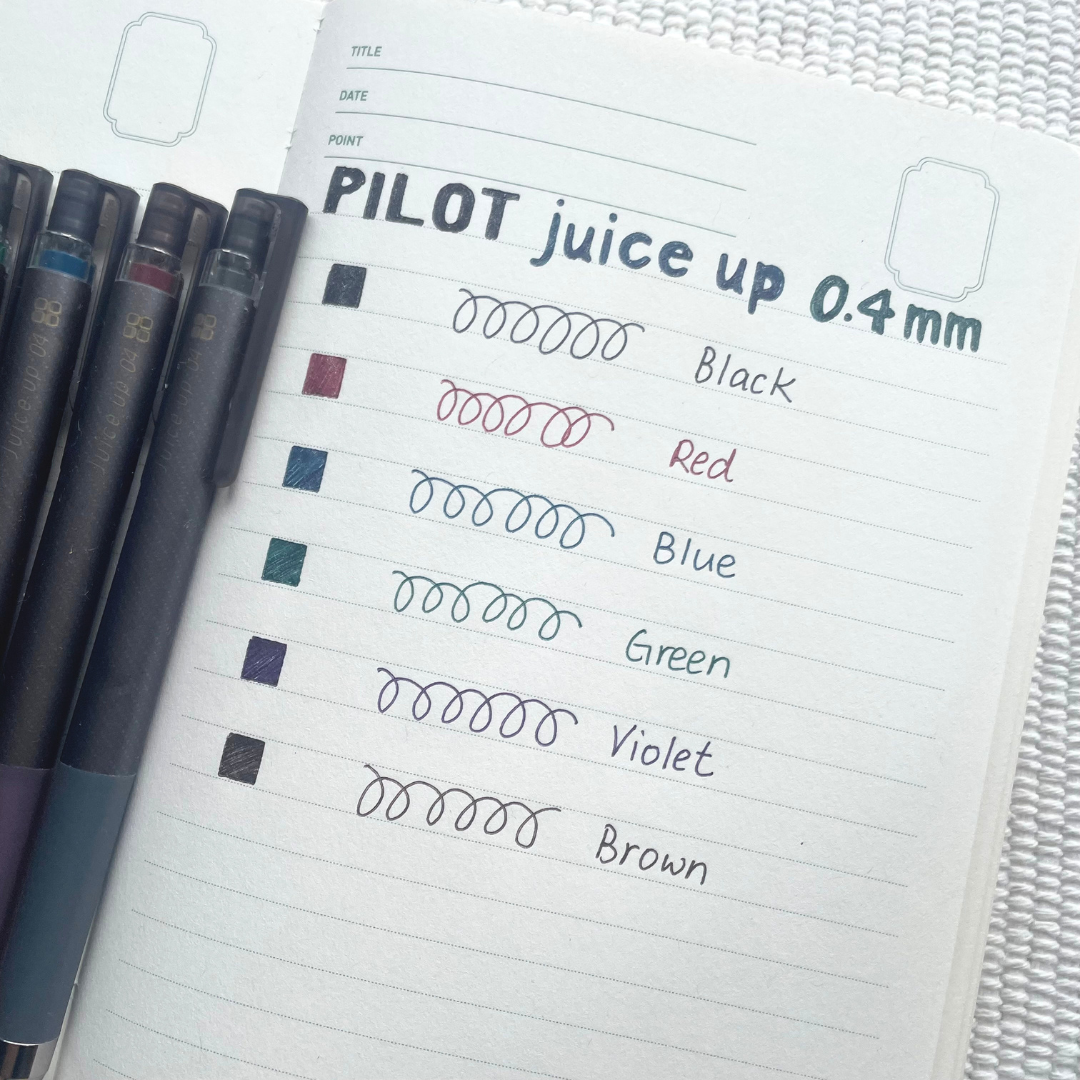 TITLE
DATE
POINT
PILOT juice up 0.4mm
Black
Red
Blue
Green
Violet
Brown
juice up 04
juice up 04
juice up 04